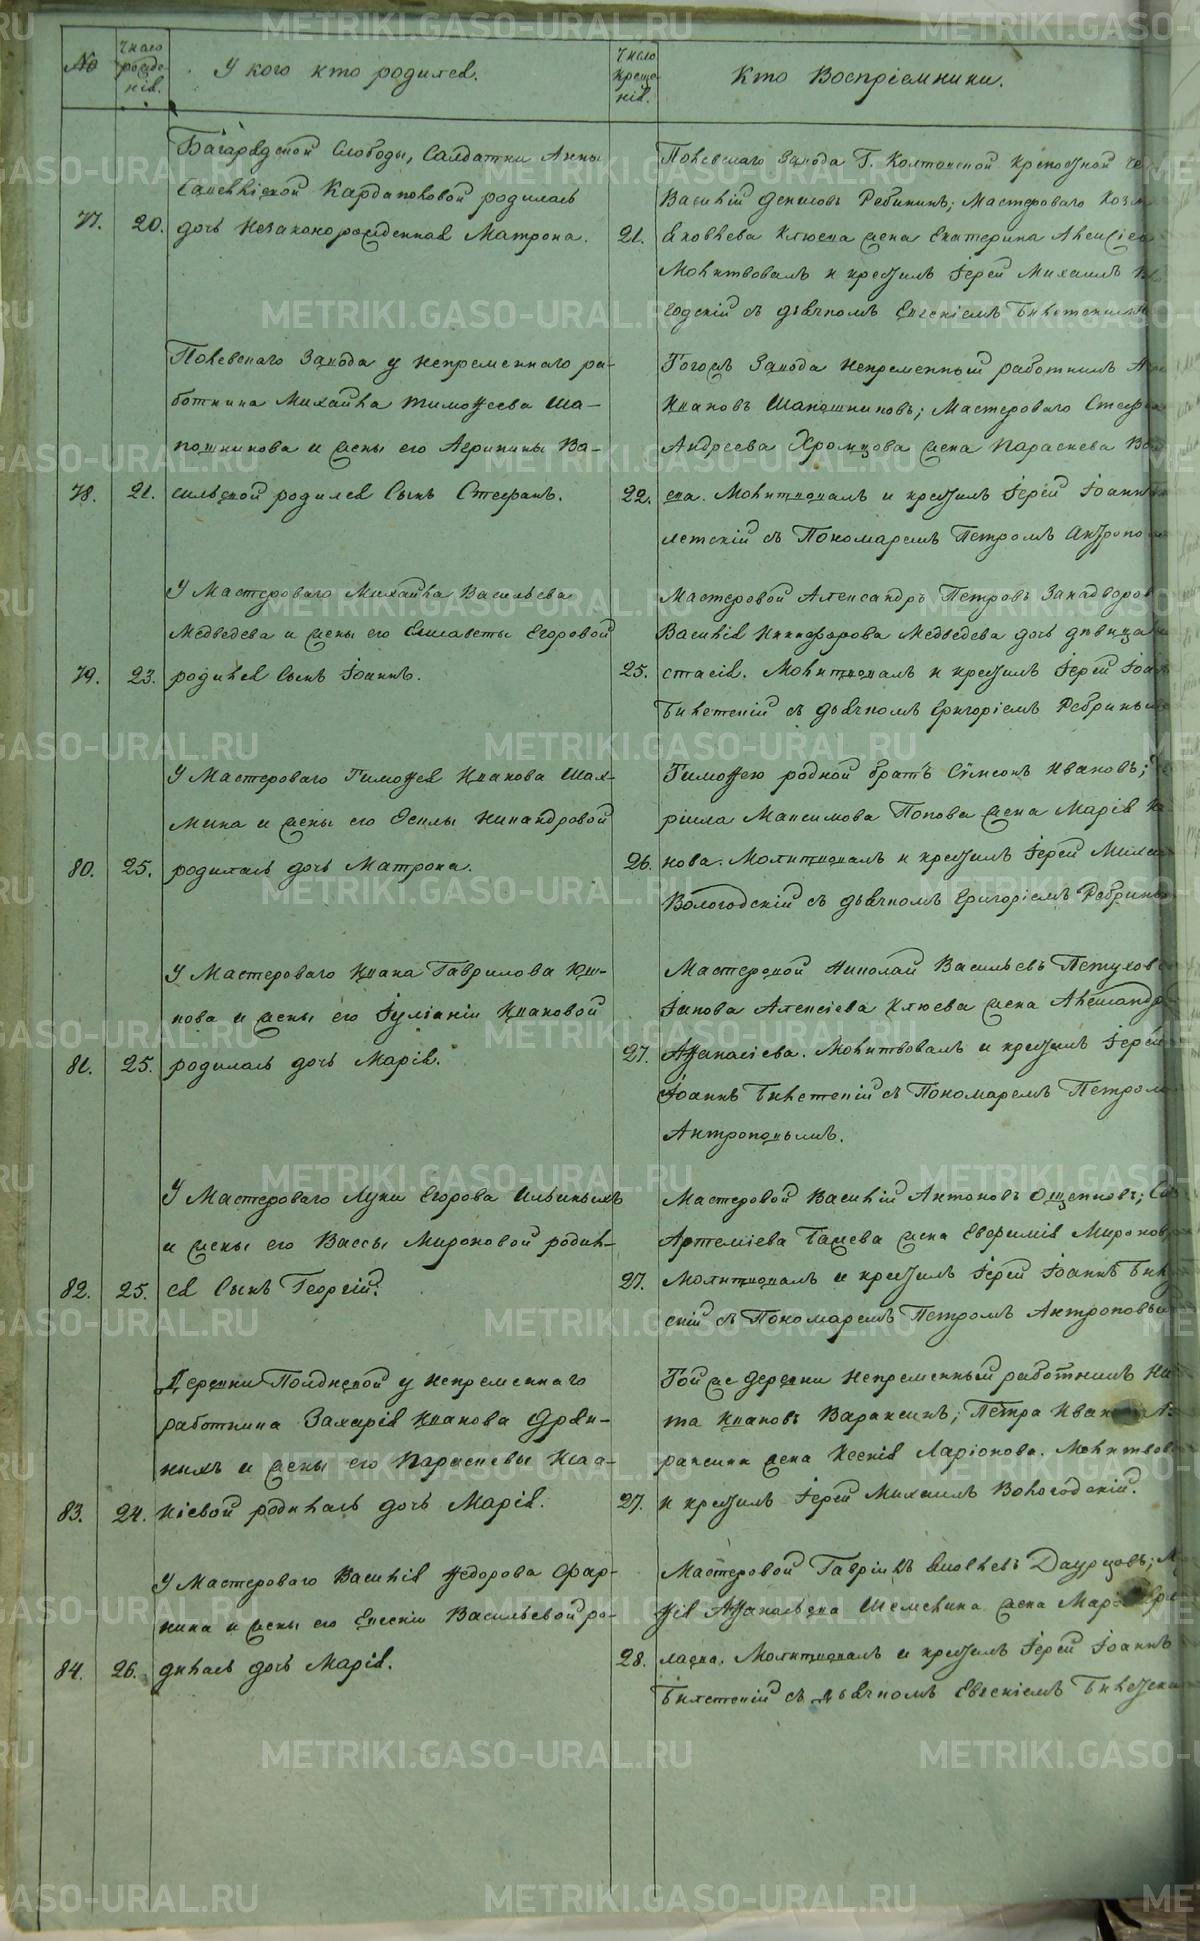 №
Число рожде-
нія.
У кого кто родился.
Число креще-
нія.
Кто Воспріемники.
Багарядской Слободы, Солдатки Анны
Савельевой Кардаполовой родилась
77. 20. дочь Незаконорожденная Матрона.
21.
Полевскаго Завода Г. Колтовской крепостной
Василій Денисовъ Рябининъ; Мастероваго Козм
Яковлева Клюева жена Екатерина Алексіева
Молитвовалъ и крестилъ Іерей Михаилъ
годскій съ дьячкомъ Евгеніемъ Билетским
Полевскаго Завода у непременнаго ра-
ботника Михайла Тимофеева Ша-
пошникова и жены его Агрипины Ва-
78. 21. сильевой родился Сынъ Стефанъ.
22.
Тогожъ Завода непременный работникъ
Ивановъ Шапошниковъ; Мастероваго Стефа
Андреева Хромцова жена Параскева
ева. Молитвовалъ и крестилъ Іерей Іоаннъ
летскій съ Пономаремъ Петромъ Антропо
У Мастероваго Михайла Васильева
Медведева и жены его Елисаветы Егоровой
79. 23. родился Сынъ Іоаннъ.
25.
Мастеровой Александръ Петровъ Западворов
Василія Никифорова Медведева дочь девица
стасія. Молитвовалъ и крестилъ Іерей Іоан
Билетскій съ дьячкомъ Григоріемъ Ребриным
У Мастероваго Тимофея Иванова Шах-
мина и жены его Феклы Никандровой
80. 25. родилась дочь Матрона.
26.
Тимофею родной братъ Сѵмеонъ Ивановъ;
ріила Максимова Попова жена Марія
нова. Молитвовалъ и крестилъ Іерей Михаи
Вологодскій съ дьячкомъ Григоріемъ Ребриным
У Мастероваго Ивана Гаврилова Юш-
кова и жены его Іуліаніи Ивановой
81. 25. родилась дочь Марія.
27.
Мастеровой Николай Васильевъ Петухов
Іакова Алексіева Клюева жена Александр
Афанасіева. Молитвовалъ и крестилъ Іерей
Іоаннъ Билетскій съ Пономаремъ Петромъ
Антроповымъ.
У Мастероваго Луки Егорова Ильиныхъ
и жены его Вассы Мироновой родил-
82. 25. ся Сынъ Георгій.
27.
Мастеровой Василій Антоновъ Ощепковъ;
Артеміева жена Евфимія Миронов
Молитвовалъ и крестилъ Іерей Іоаннъ Бил
скій съ Пономаремъ Петромъ Антроповы
Деревни Полдневой у непременнаго
работника Захарія Иванова Дрян-
ныхъ и жены его Параскевы Исаа-
83. 24. кіевой родилась дочь Марія.
27.
Той же деревни непременный работникъ Ни
та Ивановъ Вараксинъ; Петра Иван
раксина жена Ксенія Ларіонова. Молитвов
и крестилъ Іерей Михаилъ Вологодскій.
У Мастероваго Василія Федорова Фар-
нина и жены его Евгеніи Васильевой ро-
84. 26. дилась дочь Марія.
28.
Мастеровой Гавріилъ Яковлевъ Даурцовъ;
фія Афанасьева Шемелина жена
лаева. Молитвовалъ и крестилъ Іерей Іоаннъ
Билетскій съ дьячкомъ Евгеніемъ Билетски
METRIKI.GASO-URAL.RU